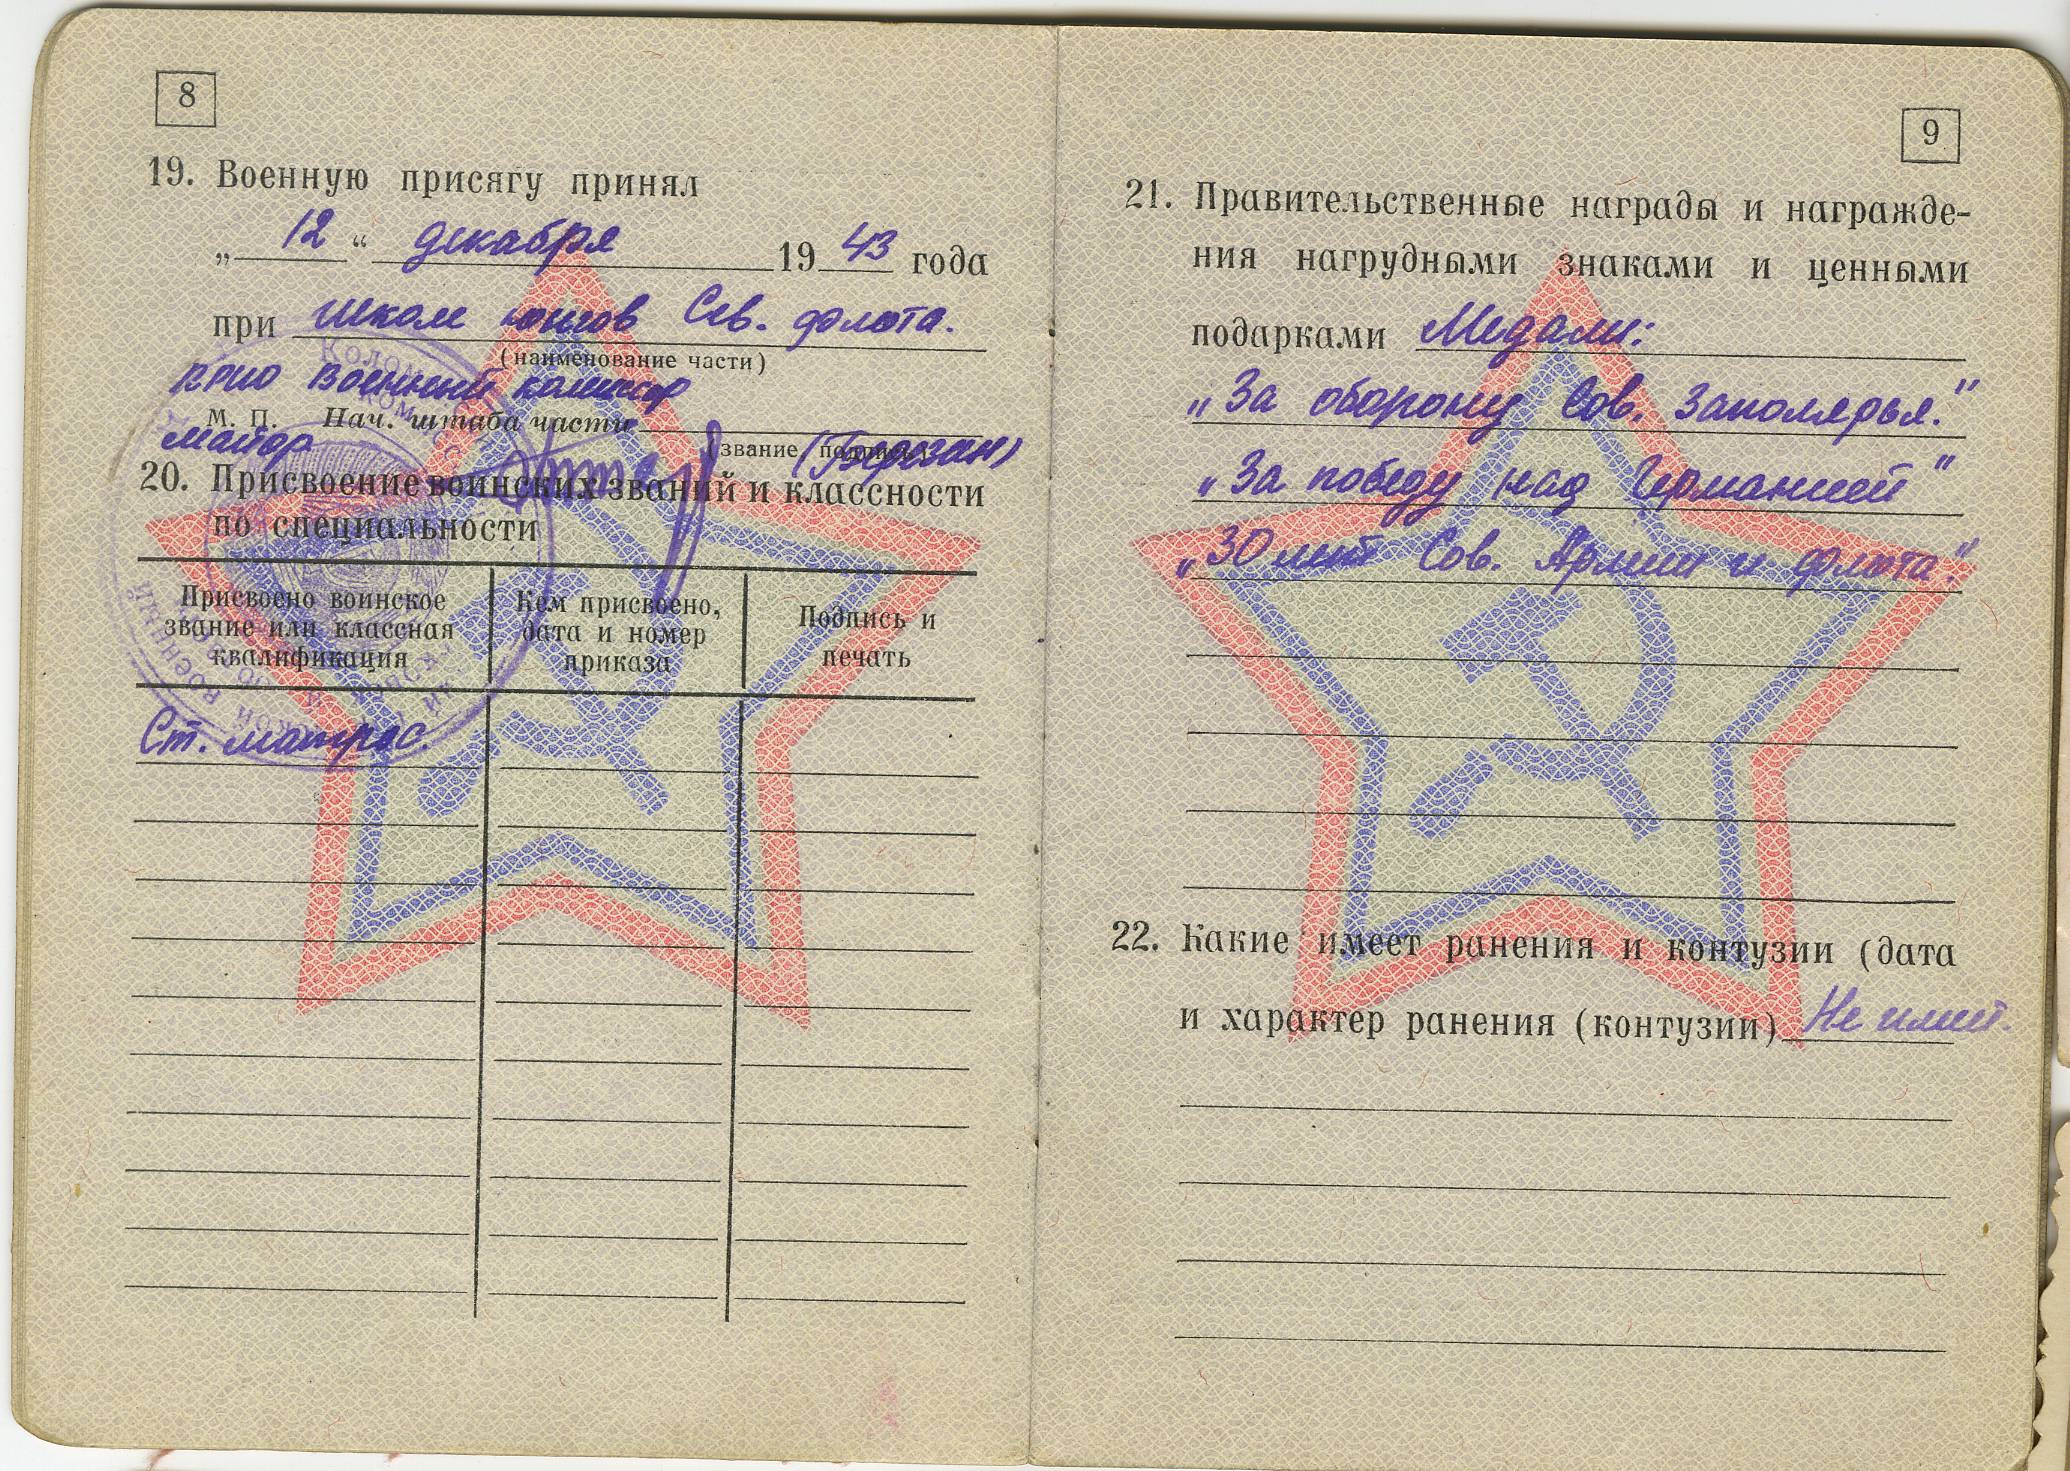 8
19. Военную присягу принял
„ 12 “ декабря 19 43 года
при школе юнгов Сев. флота.
(наименование части)
врио военный комиссар
М. П. Нач. штаба части
майор
(звание, подпись)
20. Присвоение воинских званий и классности
по специальности
Присвоено воинское
звание или классная
квалификация
Кем присвоено,
дата и номер
приказа
Подпись и
печать
Ст. матрос.
9
21. Правительственные награды и награжде-
ния нагрудными знаками и ценными
подарками Медали:
„За оборону Сов. Заполярья.“
„За победу над Германией“
„30 лет Сов. Армии и флота“.
22. Какие имеет ранения и контузии (дата
и характер ранения (контузии) Не имеет.